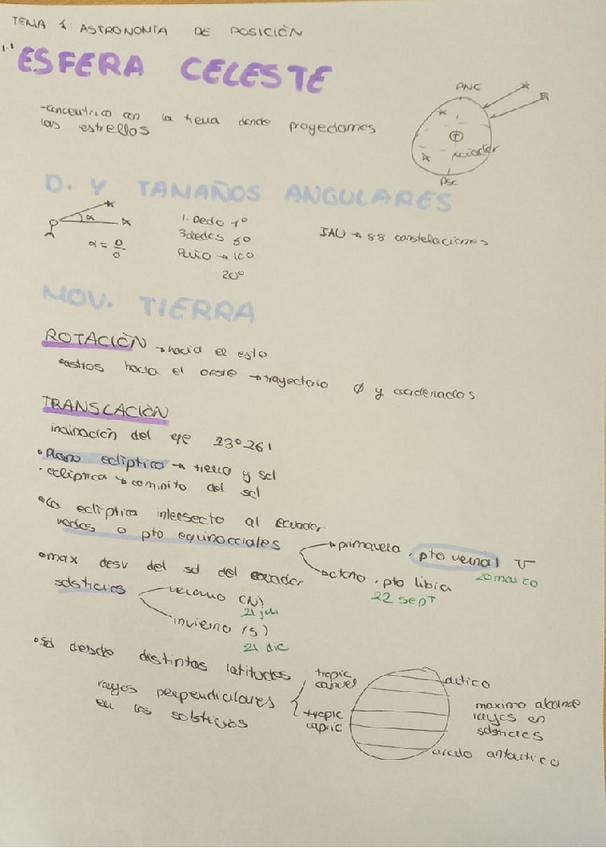 TEMA 1: ASTRONOMÍA DE POSICIÓN
1.1 ESFERA CELESTE
-concentrica con la tierra donde proyectamos
las estrellas
PNC
ecuador
PSC
D. Y TAMAÑOS ANGULARES
α
α = D/d
1 Dedo 1º
3 dedos 5º
Puño → 10º
20º
IAU → 88 constelaciones
MOV. TIERRA
ROTACIÓN → hacia el este
astros hacia el oeste → trayectoria φ y coordenadas
TRANSLACIÓN
inclinación del eje 23º 26'
• Plano ecliptico → tierra y sol
• ecliptica → caminito del sol
• la ecliptica intersecta al Ecuador
nodos o pto equinocciales
primavera . pto vernal ♈
20 marzo
otoño . pto libra
22 sept
• max desv del sol del ecuador
solsticios
verano (N)
21 jun
invierno (S)
21 dic
• Sol desde distintas latitudes
rayos perpendiculares
en los solsticios
tropic
cancer
tropic
capric
artico
maximo alcance
rayos en
solsticios
circulo antartico